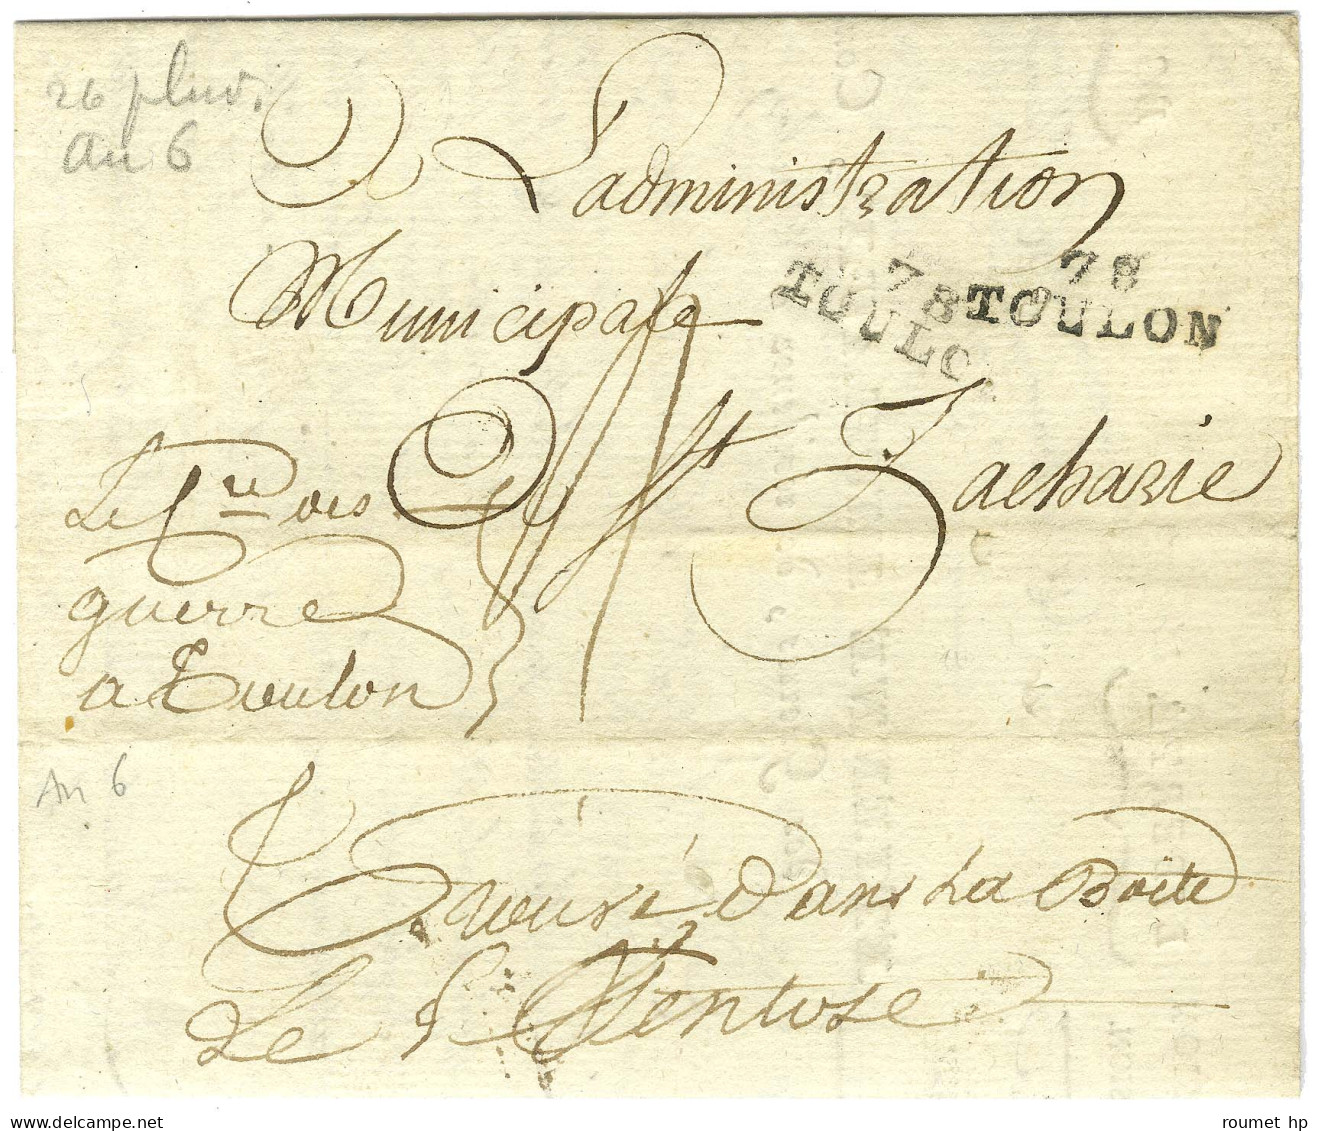 26 pluvi.
an 6
A L'administration
Municipale
78
TOULON
78
TOULO
De St Zacharie
Le Cre des
guerre
a Toulon
An 6
Trouvé dans la Boëtte
Le 5 Ventose
roumet hp